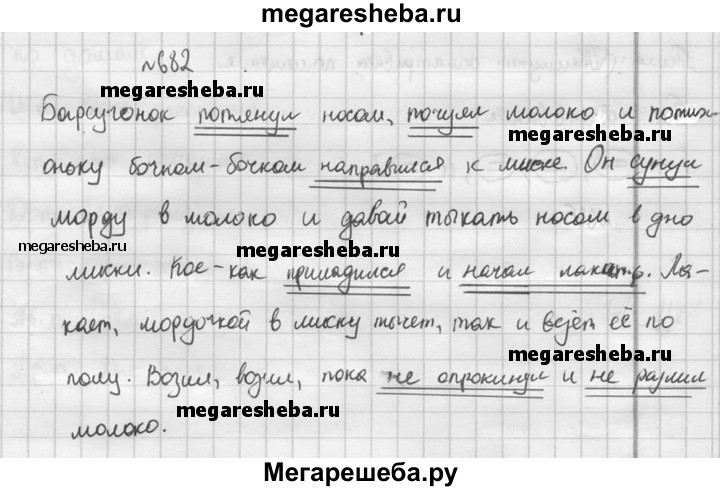 megaresheba.ru
№682
megaresheba.ru
Барсучонок потянул носом, почуял молоко и потих-
megaresheba.ru
оньку бочком-бочком направился к миске. Он сунул
megaresheba.ru
морду в молоко и давай тыкать носом в дно
megaresheba.ru
megaresheba.ru
миски. Кое-как приладился и начал лакать. Ла-
megaresheba.ru
кает, мордочкой в миску тычет, так и везёт её по
megaresheba.ru
полу. Возил, возил, пока не опрокинул и не разлил
megaresheba.ru
молоко.
Мегарешеба.ру